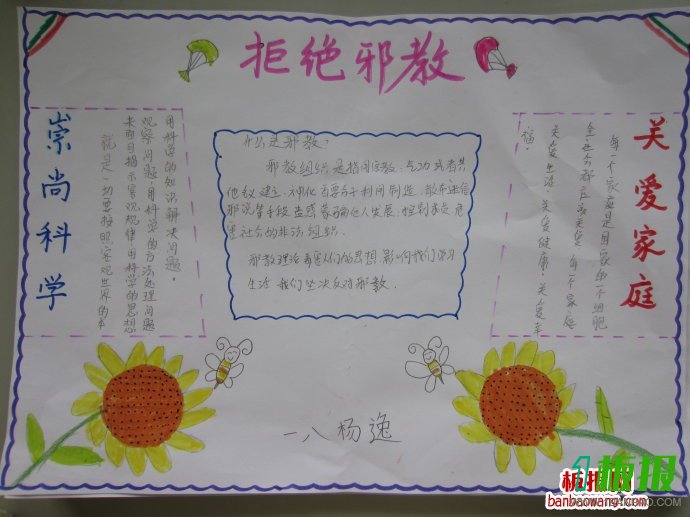 拒绝邪教
崇尚科学
就是一切要按照客观世界的本
来面目揭示客观规律,用科学的思想
观察问题,用科学的方法处理问题
用科学的知识解决问题。
什么是邪教:
邪教组织是指冒用宗教、气功或者其
他名义建立,神化首要分子利用制造、散布迷信
邪说等手段蛊惑蒙骗他人发展、控制成员危
害社会的非法组织。
邪教理论毒害人们的思想,影响我们学习
生活 我们坚决反对邪教.
关爱家庭
每一个家庭是国家的一个细胞
全社会都应该关爱每一个家庭
关爱生活、关爱健康、关爱幸
福!
一八杨逸
板报
板报网
banbaowang.com